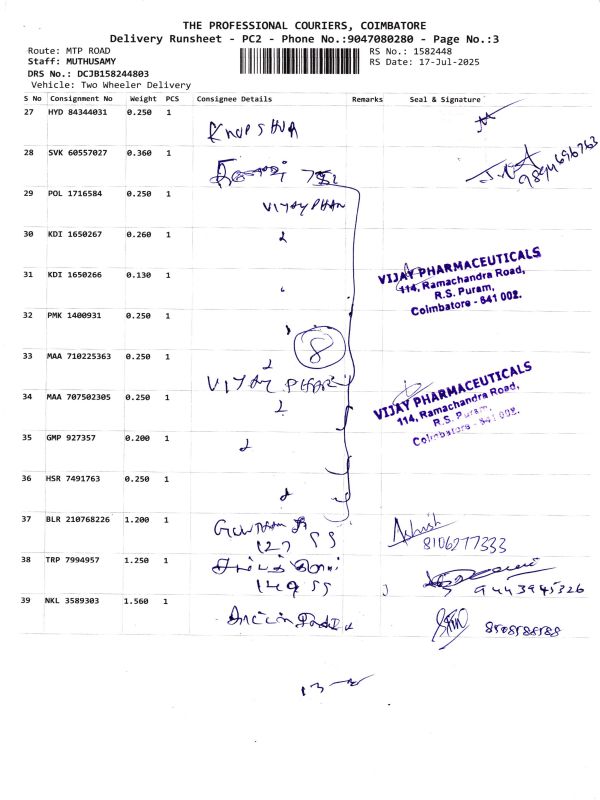 THE PROFESSIONAL COURIERS, COIMBATORE
Delivery Runsheet - PC2 - Phone No.:9047080280 - Page No.:3
Route: MTP ROAD
RS No.: 1582448
Staff: MUTHUSAMY
RS Date: 17-Jul-2025
DRS No.: DCJB158244803
Vehicle: Two Wheeler Delivery
S No Consignment No Weight PCS Consignee Details Remarks Seal & Signature
27 HYD 84344031 0.250 1
28 SVK 60557027 0.360 1
29 POL 1716584 0.250 1 VIJAY PHAR
30 KDI 1650267 0.260 1
31 KDI 1650266 0.130 1
VIJAY PHARMACEUTICALS
114, Ramachandra Road,
R.S. Puram,
Coimbatore - 641 002.
32 PMK 1400931 0.250 1
8
33 MAA 710225363 0.250 1
VIJAY PHAR
34 MAA 707502305 0.250 1
VIJAY PHARMACEUTICALS
114, Ramachandra Road,
R.S. Puram,
Coimbatore - 641 002.
35 GMP 927357 0.200 1
36 HSR 7491763 0.250 1
37 BLR 210768226 1.200 1 Ashish
8106277333
38 TRP 7994957 1.250 1
9443945326
39 NKL 3589303 1.560 1